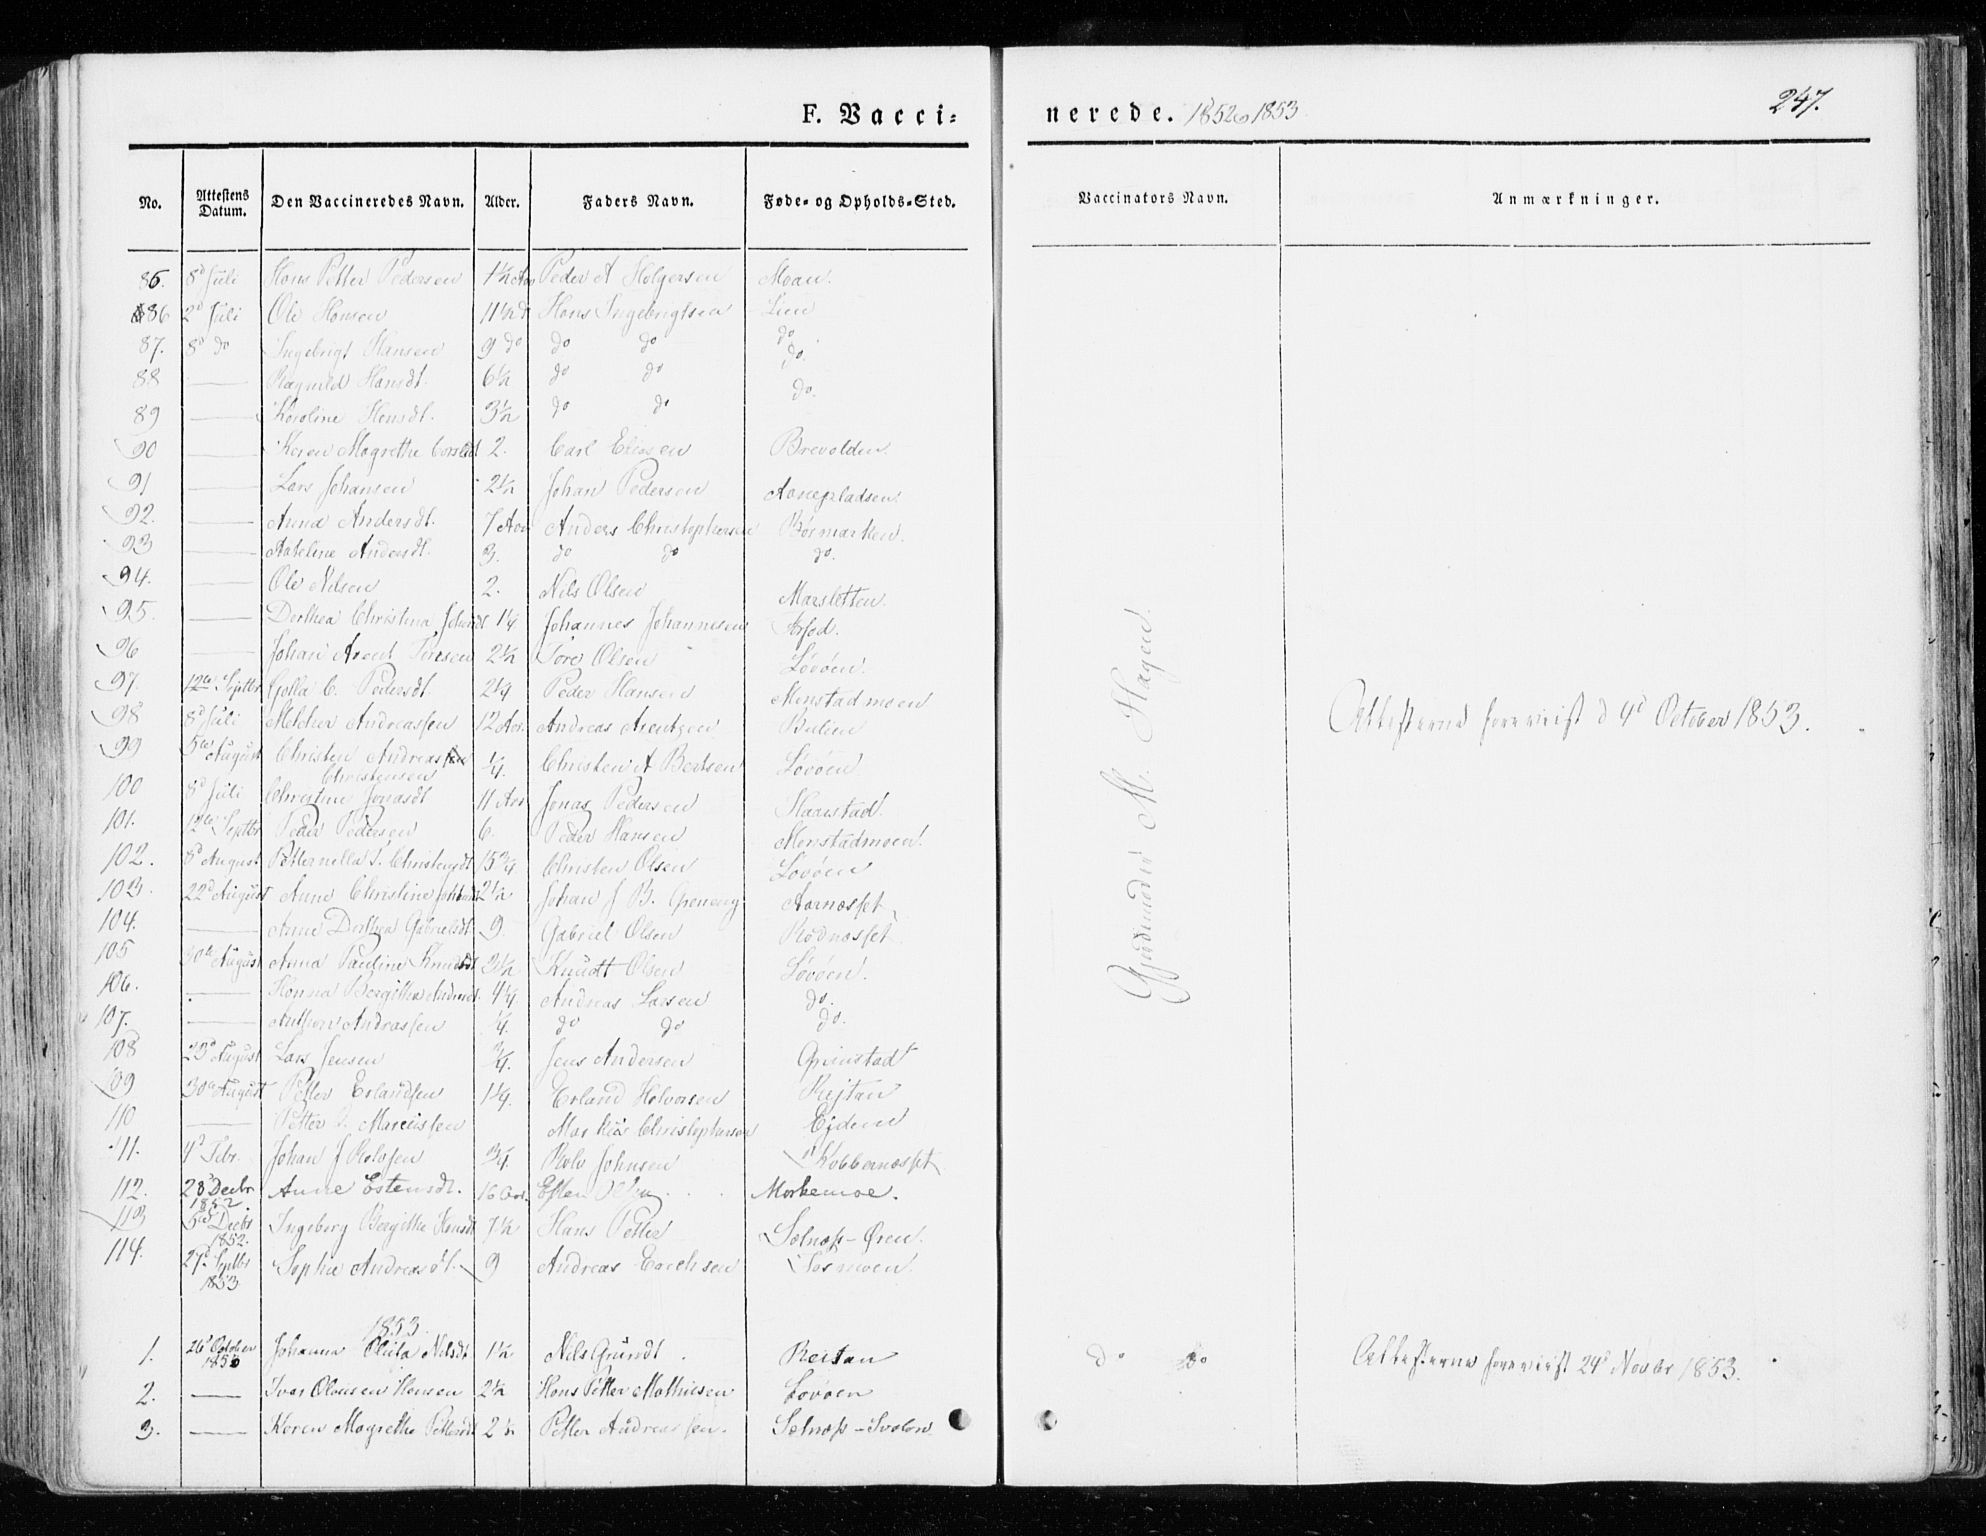 F. Vacci= nerede. 1852 og 1853 247.
No. Attestens Datum. Den Vaccineredes Navn. Alder. Faders Navn. Føde- og Opholds-Sted. Vaccinators Navn. Anmærkninger.
86. 8d Juli Hans Petter Pedersen 1½ Aar Peder A Holgersen Moan.
86 2d Juli Ole Hansen 11½ do Hans Ingebrigtsen Lien
87. 8d do Ingebrigt Hansen 9 do do do do
88 — Ragnild Hansdt. 6½ do do do.
89 — Karoline Hansdt. 3½ do do do.
90 — Karen Magrethe 2. Carl Eliasen Brevolden
91 — Lars Johansen 2½ Johan Pedersen Aanepladsen.
92. — Anna Andersdt. 7 Aar Anders Christophersen Røsmarken.
93 — Andersdt. 3. do do do.
94. — Ole Nilsen 2. Nils Olsen Marsletten.
95. — Dorthea Christina 1¼ Johannes Johannesen
96 — Johan Arent Toresen 2½ Tore Olsen Løvøen.
97. 12te Septbr C. Pedersdt. 2¼ Peder Hansen Menstadmoen
98 8d Juli Melcher Andreassen 12 Aar. Andreas Arentzen
99 5te August Christen Andreas Christensen ¼ Christen A Bertsen Løvøen
100 8d Juli Christine Jonasdt 11 Aar Jonas Pedersen Haarstad.
101. 12te Septbr Peder Pedersen 6. Peder Hansen Menstadmoen.
102. 8d August Petternella P. Christensdt 15¾ Christen Olsen Løvøen
103. 22d August Anne Christine 2½ Johan J B. Aarnæsset
104. — Anne Dorthea Gabrielsdt 9. Gabriel Olsen Rødnæsset
105 30te August Anna Pauline Knudsdt 3½ Knudt Olsen Løvøen.
106. — Hanna Bergitha 4¼ Andreas Larsen do.
107. — Anthon Andreassen ¼ do do do.
108 23d August Lars Jensen ¾. Jens Andersen Grinstad
109 30te August Petter Erlandsen 1¼. Erland Halvorsen Rejtan
110 — Petter Marcussen Markus Christophersen Ejdem
111. 4d Febr. Johan J Rolofsen ¾ Rolv Johnsen Kobbernæsset
112. 28d Decbr 1852 Anne Estensdt. 16 Aar. Esten Olsen Morkemoe.
113 5te Decbr 1852. Ingeborg Bergithe 7½ Hans Petter Selnæs-Øren.
114. 27d Septbr 1853 Sophie Andreasdt. 9 Andreas Erichsen
Gjødemoder M. Hagen.
Attesterne foreviist d 4d October 1853.
1853.
1. 26d October 1853 Johanna Nilsdt 1½ Nils Grundt. Reitan do do Attesterne foreviist 24d Novbr 1853.
2. — Ivar Olausen Hansen 2½ Hans Petter Mathiesen Løvøen
3. — Karen Magrethe Pettersdt 2½ Petter Andreassen. Selnæs-Svalen